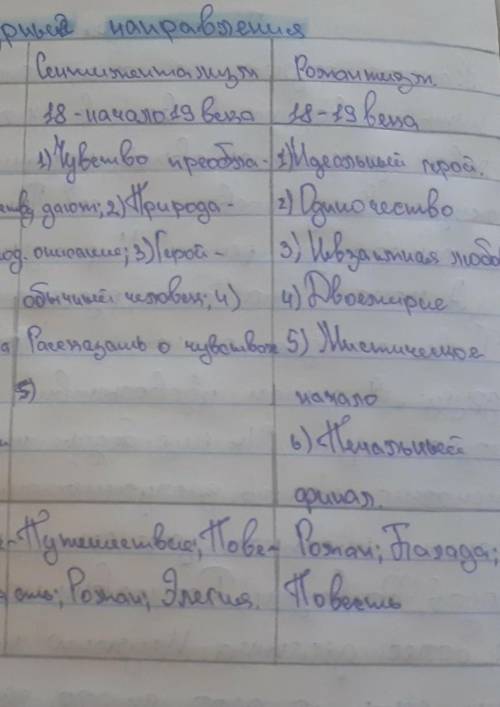 направления
Сентиментализм Романтизм.
18-начало 19 века 18-19 века
1) Чувство преобла- 1) Идеальный герой.
дают; 2) Природа- 2) Одиночество
описание; 3) Герой- 3) Невзаимная любо
обычный человек; 4) 4) Двоемирие
Рассказать о чувствах 5) Мистическое
5) начало
6) Печальный
финал.
Путешествия; Пове- Роман; Балада;
сть; Роман; Элегия. Повесть